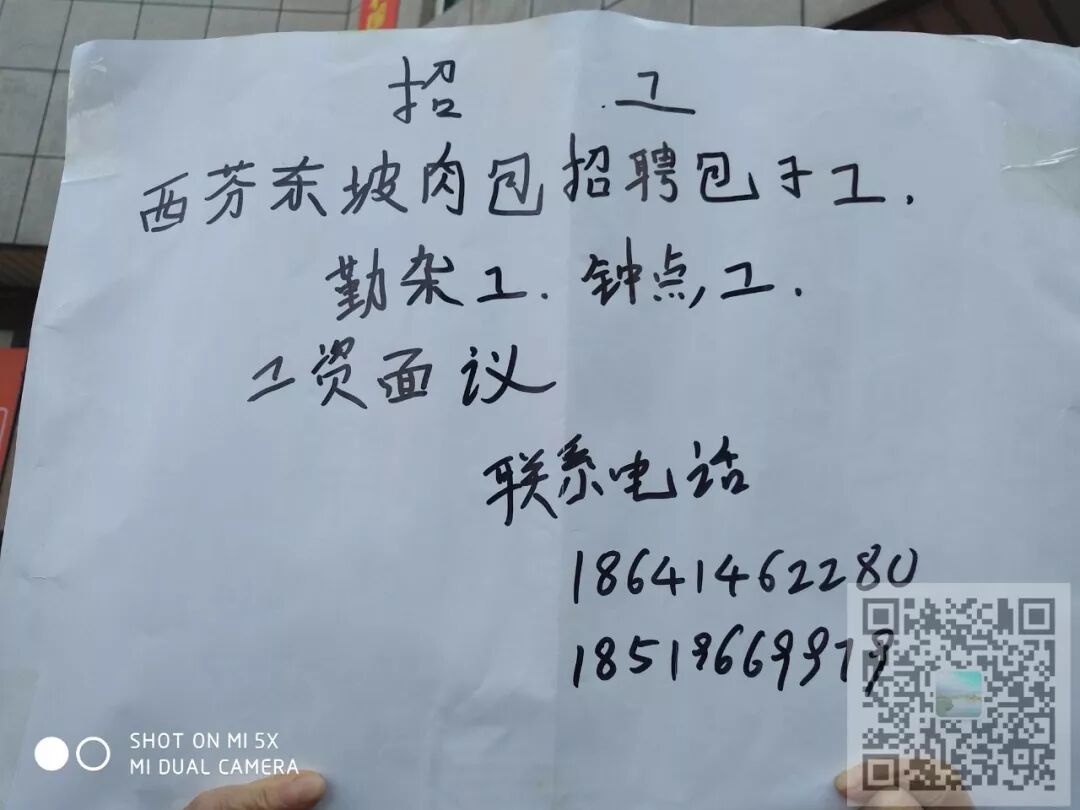 招 工
西芬东坡肉包招聘包子工.
勤杂工. 钟点工.
工资面议
联系电话
18641462280
18519669979
SHOT ON MI 5X
MI DUAL CAMERA